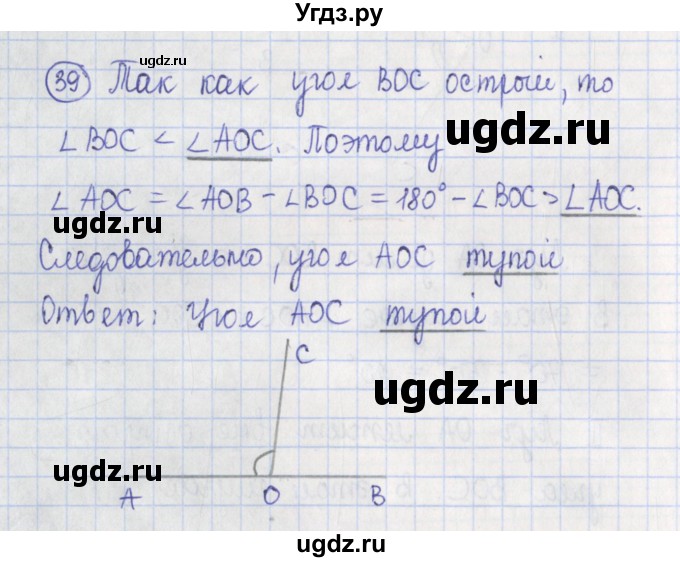 Угдз.ру
39 Так как угол BOC острый, то
∠BOC < ∠AOC. Поэтому
∠AOC = ∠AOB - ∠BOC = 180° - ∠BOC > ∠AOC.
Следовательно, угол AOC тупой
Ответ: Угол AOC тупой
C
A O B
ugdz.ru
ugdz.ru
ugdz.ru
ugdz.ru
ugdz.ru
ugdz.ru
ugdz.ru
ugdz.ru
ugdz.ru